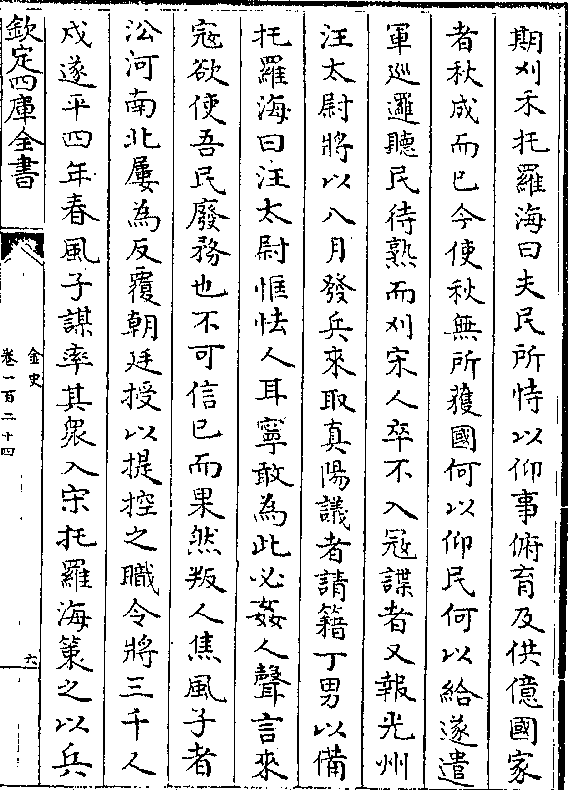 期刈禾托羅海曰夫民所恃以仰事俯育及供億國家
者秋成而已今使秋無所獲國何以仰民何以給遂遣
軍巡邏聽民待熟而刈宋人卒不入冦諜者又報光州
汪太尉將以八月發兵來取真陽議者請籍丁男以備
托羅海曰汪太尉恇怯人耳寧敢為此必姦人聲言來
冦欲使吾民廢務也不可信已而果然叛人焦風子者
沿河南北屢為反覆朝廷授以提控之職令將三千人
戍遂平四年春風子謀率其衆入宋托羅海策之以兵
欽定四庫全書
金史
卷一百二十四
六